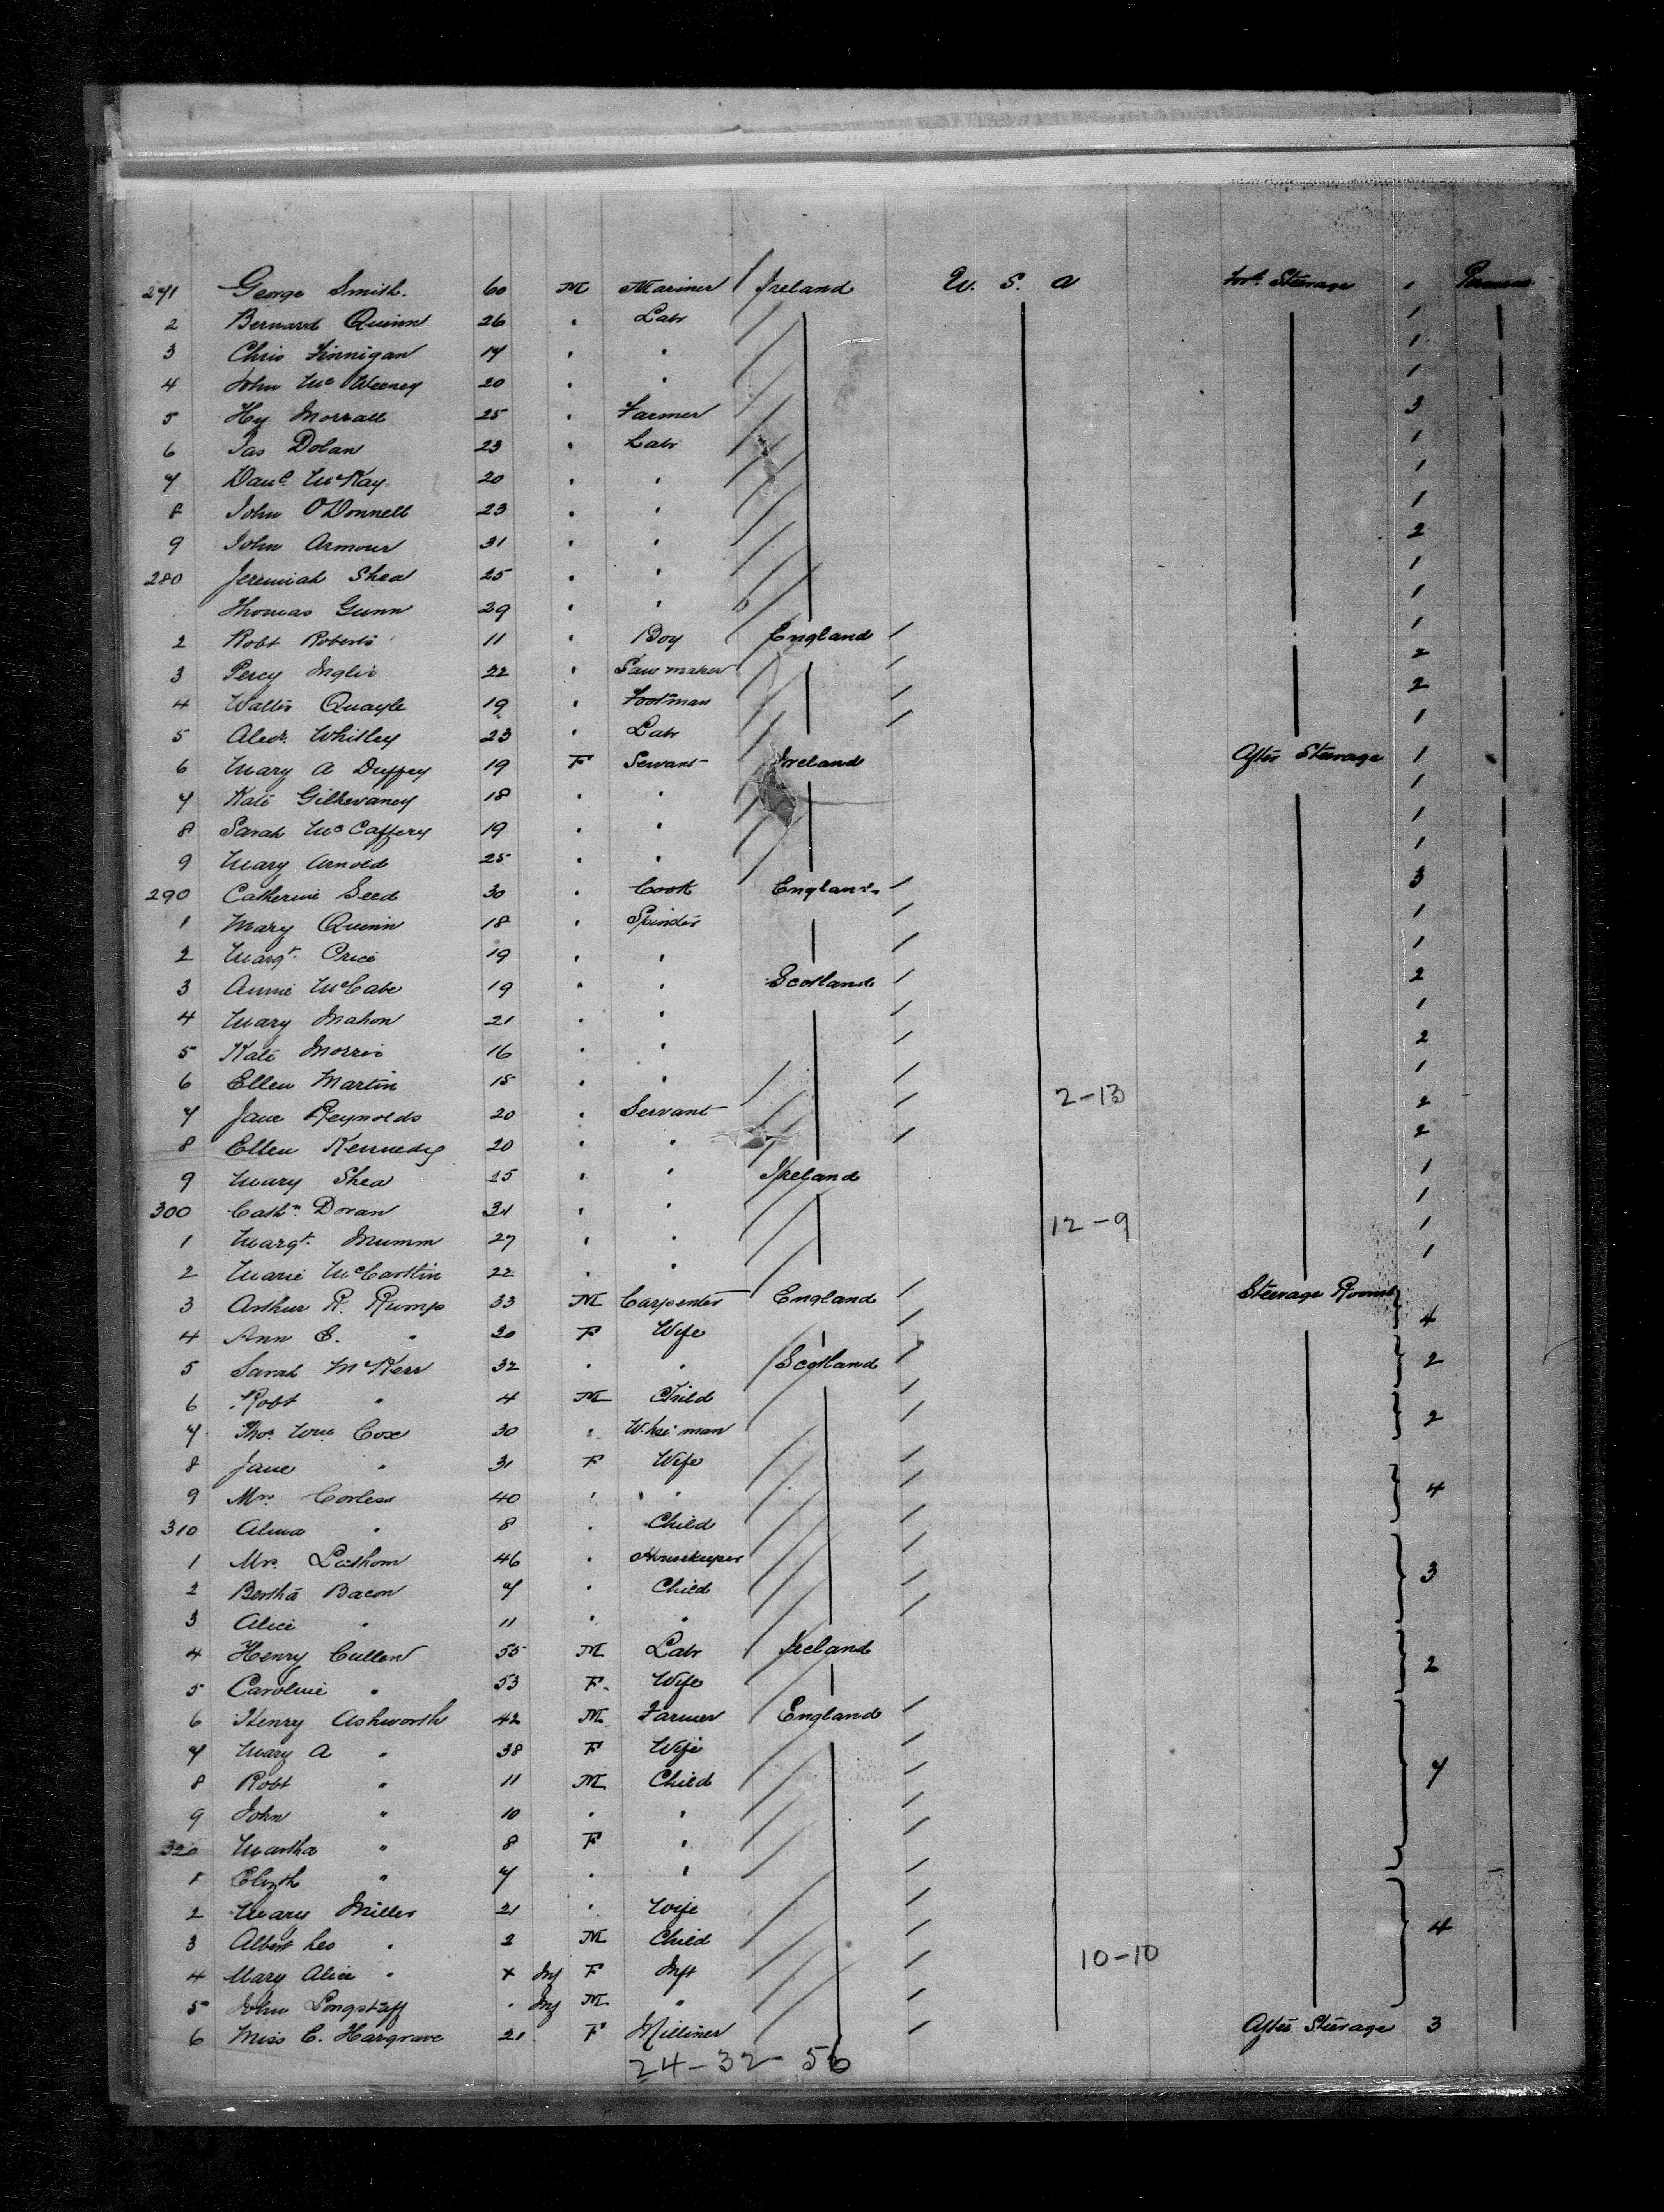 271 George Smith. 60 M Mariner Ireland U. S. A For'd Steerage 1
2 Bernard Quinn 26 " Labr 1
3 Chris Finnigan 17 " " 1
4 John McWeeney 20 " " 1
5 Hy Morrall 25 " Farmer 3
6 Jas Dolan 23 " Labr 1
7 Danl. McKay 20 " " 1
8 John O'Donnell 23 " " 1
9 John Armour 31 " " 2
280 Jeremiah Shea 25 " " 1
Thomas Gunn 29 " " 1
2 Robt Roberts 11 " Boy England 1
3 Percy Inglis 22 " Saw maker 2
4 Walter Quayle 19 " Footman 2
5 Alexr. Whitley 23 " Labr 1
6 Mary A Duffey 19 F Servant Ireland After Steerage 1
7 Kate Gilhevaney 18 " " 1
8 Sarah McCaffery 19 " " 1
9 Mary Arnold 25 " " 1
290 Catherine Seed 30 " Cook England 3
1 Mary Quinn 18 " Spinster 1
2 Margt. Price 19 " " 1
3 Annie McCabe 19 " " Scotland 2
4 Mary Mahon 21 " " 1
5 Kate Morris 16 " " 2
6 Ellen Martin 15 " " 1
7 Jane Reynolds 20 " Servant 2-13 2
8 Ellen Kennedy 20 " " 2
9 Mary Shea 25 " " Ireland 1
300 Cathn. Doran 31 " " 12-9 1
1 Margt. Mumm 27 " " 1
2 Marie McCartin 22 " " 1
3 Arthur R. Rump 33 M Carpenter England Steerage Rooms
4 Ann E. " 30 F Wife 4
5 Sarah McKerr 32 " " Scotland 2
6 Robt " 4 M Child
7 Thos. Wm Cox 30 " man 2
8 Jane " 31 F Wife
9 Mrs. Corless 40 " " 4
310 Alma " 8 " Child
1 Mrs. Lathom 46 " Housekeeper
2 Bertha Bacon 7 " Child 3
3 Alice " 11 " "
4 Henry Cullen 55 M Labr Ireland
5 Caroline " 53 F. Wife 2
6 Henry Ashworth 42 M Farmer England
7 Mary A " 38 F Wife
8 Robt " 11 M Child 7
9 John " 10 " "
320 Martha " 8 F "
1 Elizth " 7 " "
2 Mary Miller 21 " Wife
3 Albert Leo " 2 M Child 4
4 Mary Alice " + Inf F Inft 10-10
5 John Longstaff " Inf M "
6 Miss C. Hargrave 21 F Milliner After Steerage 3
24-32-56